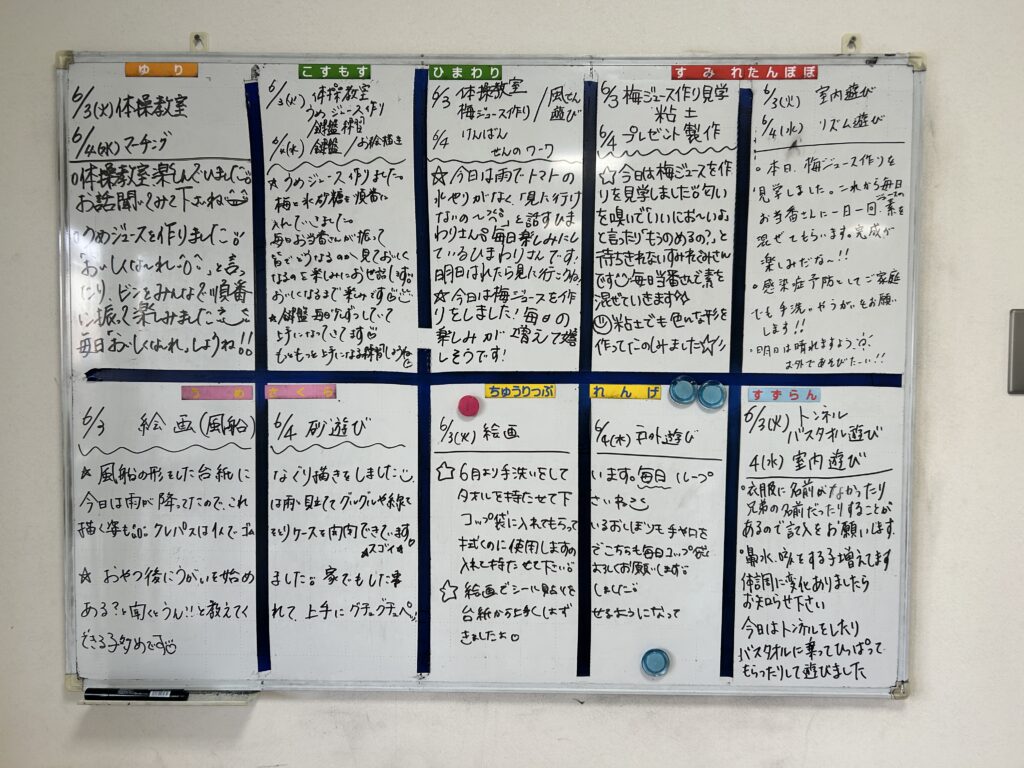 ゆり
6/3(火)体操教室
6/4(水)マーチング
○体操教室楽しんでいました
お話聞いてみて下さいね
○うめジュースを作りました
「おいしくな〜れ」と言っ
たり、ビンをみんなで順番
に振って楽しみました
毎日「おいしくなれ」しようね!!
こすもす
6/3(火) 体操教室
うめジュース作り
鍵盤練習
6/4(水) 鍵盤/お絵描き
☆うめジュース作りました。
梅と氷砂糖を順番に
入れていきました。
毎日お当番さんが振って
皆でどうなるのか見ておいしく
なるのを楽しみにお世話します。
おいしくなるまで楽しみです
☆鍵盤毎日少ずつしていて
上手になってきてます
もともっと上手になる練習しようね
ひまわり
6/3 体操教室
梅ジュース作り/風さん遊び
6/4 けんばん
せんのワーク
☆今日は雨でトマトの
水やりがなく、「見に行け
ないの〜?」と話すひま
わりさん。毎日楽しみにし
ているひまわりさんです!
明日はれたら見に行こうね。
☆今日は梅ジュースを作
りをしました!毎日の
楽しみが増えて嬉
しそうです!
すみれたんぽぽ
6/3 梅ジュース作り見学
粘土
6/4 プレゼント製作
☆今日は梅ジュースを作
りを見学しました。匂い
を嗅いで「いいにお〜い」
と言ったり「もうのめるの?」と
待ちきれないすみれぐみさん
です 毎日当番さんで素を
混ぜていきます
粘土でも色んな形を
作ってたのしみました☆
6/3(火) 室内遊び
6/4(水) リズム遊び
・本日、梅ジュース作りを
見学しました。これから毎日
お当番さんに一日一回、素を
混ぜてもらいます。完成が
楽しみだな〜!!
○感染症予防としてご家庭
でも手洗い、うがいをお願い
します!!
・明日は晴れますよう
お外であそびたい!!
うめ
さくら
6/3 絵画(風船)
6/4 砂遊び
☆風船の形をした台紙に なぐり描きをしました
今日は雨が降ってたので、これ は雨と見立ててグルグルや線を
描く姿も。クレパスは1人でゴム とりケースを開閉できています。
☆スゴイ☆
☆おやつ後にうがいを始め ました。家でもした事
ある?と聞くとうん!!と教えてく れて、上手にグチュグチュペッ
できる子多めです
ちゅうりっぷ
れんげ
6/3(火) 絵画
6/4(水) 戸外遊び
☆6日より手洗いをして います。毎日(ループ
タオルを持たせて下 さいね
コップ袋に入れてもらって いるおしぼりを手や口を
拭くのに使用しますの でこちらも毎日コップ袋に
入れて持たせて下さい。 よろしくお願いします。
☆絵画でシール貼りを しました
台紙から上手くはず せるようになって
きましたよ
すずらん
6/3(火) トンネル
バスタオル遊び
4(水) 室内遊び
・衣服に名前がなかったり
兄弟の名前だったりすることが
あるので記入をお願いします。
・鼻水、咳をする子増えてます
体調に変化ありましたら
お知らせ下さい
今日はトンネルをしたり
バスタオルに乗ってひっぱって
もらったりして遊びました